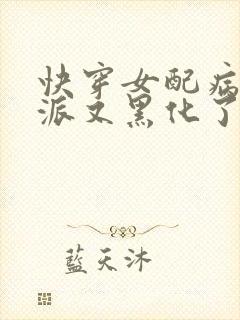 快穿女配病
派又黑化了
藍天沐